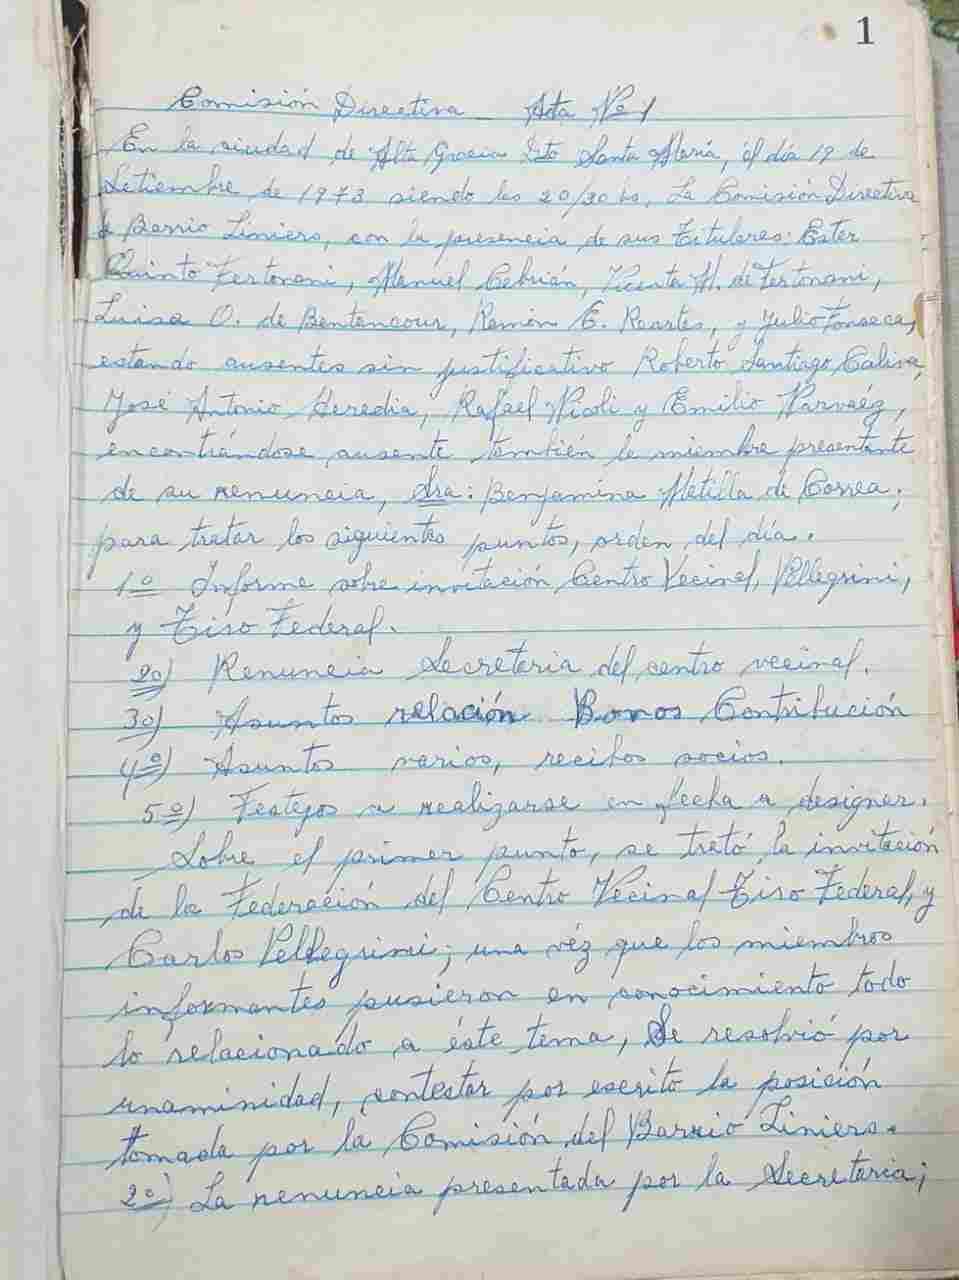 1
Comisión Directiva Acta Nº 1
En la ciudad de Alta Gracia Dto Santa María, él día 19 de
Setiembre de 1973 siendo las 20/30 hs, La Comisión Directiva
de Barrio Liniers, con la presencia de sus Titulares: Ester
Quinto Tertonani, Manuel Cebrián, Vicenta M. de Tertonani,
Luisa O. de Bentencour, Ramón E. Reartes, y Julio Fonseca,
estando ausentes sin justificativo Roberto Santiago Caliva,
José Antonio Heredia, Rafael Nicoli y Emilio Narvaéz,
encontrándose ausente también la miembro presentante
de su renuncia, Sra: Benjamina Matilla de Correa,
para tratar los siguientes puntos, orden del día.
1º Informe sobre invitación Centro Vecinal, Pellegrini,
y Tiro Federal.
2º) Renuncia Secretaria del centro vecinal.
3º) Asuntos relación Bonos Contribución
4º) Asuntos varios, recibos socios.
5º) Festejos a realizarse en fecha a designar.
Sobre el primer punto, se trató la invitación
de la Federación del Centro Vecinal Tiro Federal, y
Carlos Pellegrini; una véz que los miembros
informantes pusieron en conocimiento todo
lo relacionado a éste tema, Se resolvió por
unaminidad, contestar por escrito la posición
tomada por la Comisión del Barrio Liniers.
2º) La renuncia presentada por la Secretaria;